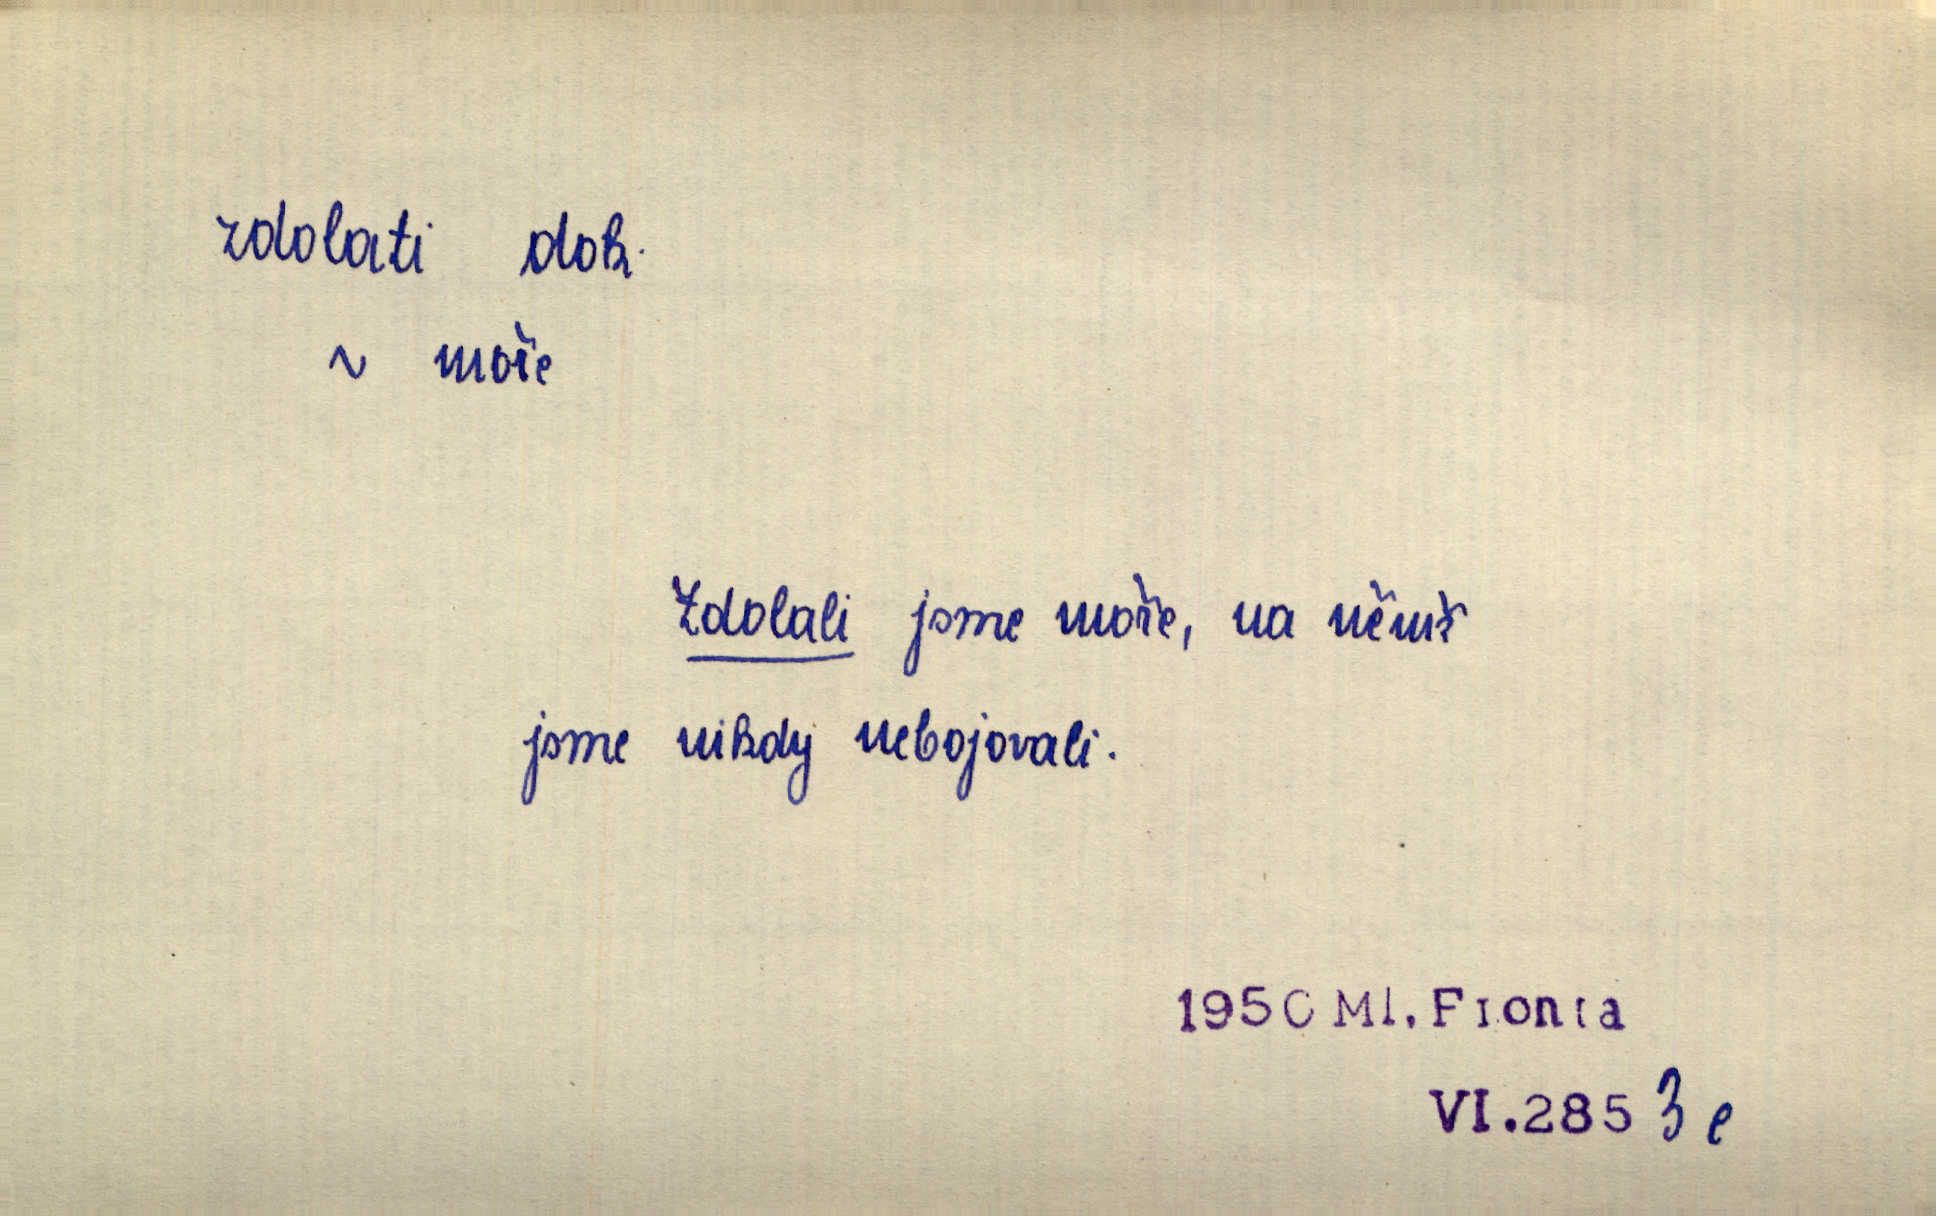 zdolati dok.
~ moře
Zdolali jsme moře, na němž
jsme nikdy nebojovali.
1950 Ml. Fronta
VI.285 3 e